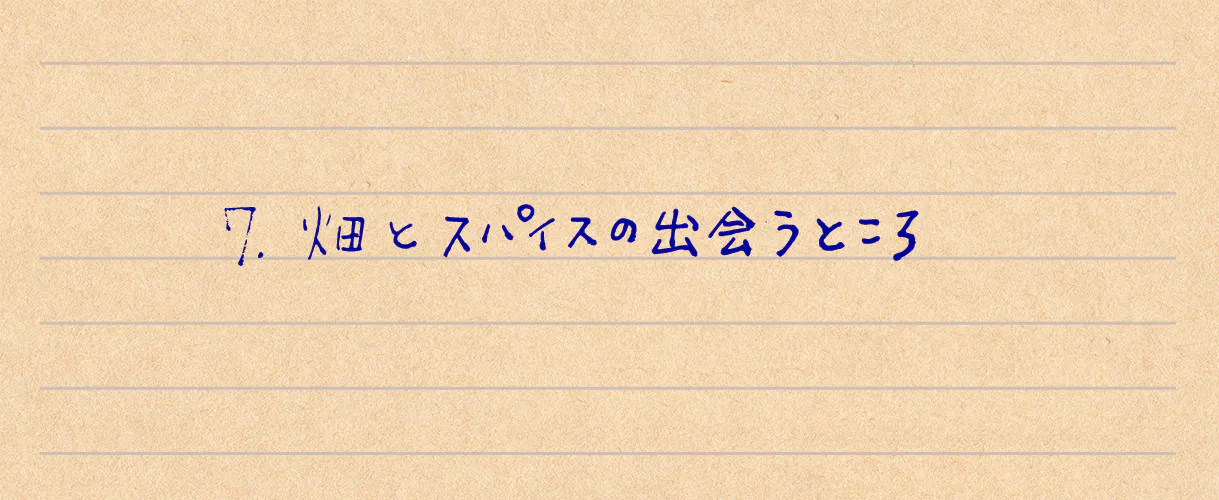 7. 畑とスパイスの出会うところ